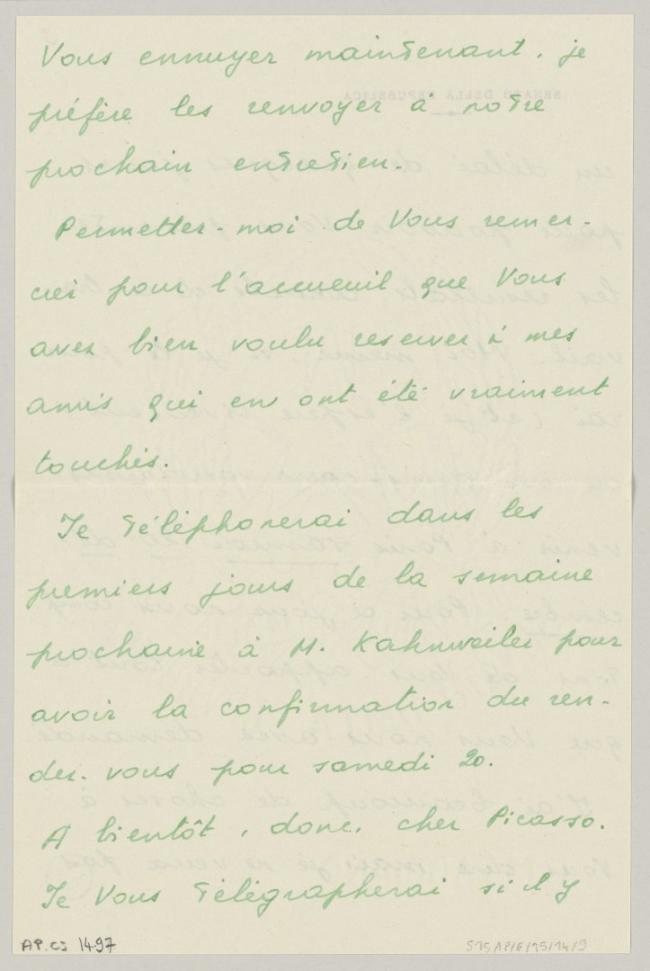 Vous ennuyer maintenant, je
préfère les renvoyer à notre
prochain entretien.
Permetter-moi de Vous remer-
cier pour l'accueuil que Vous
avez bien voulu reserver à mes
amis qui en ont été vraiment
touchés.
Je téléphonerai dans les
premiers jours de la semaine
prochaine à M. Kahnweiler pour
avoir la confirmation du ren-
dez-vous pour samedi 20.
A bientôt, donc, cher Picasso.
Je Vous télégrapherai si il y
AP.C: 1497
515AP/E/15/14/9
SENATO DELLA REPUBBLICA